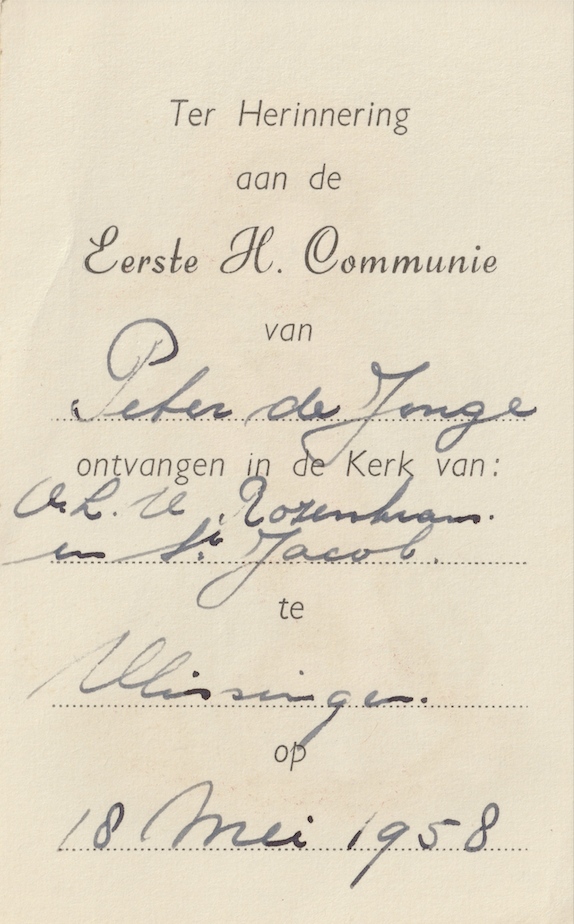 Ter Herinnering
aan de
Eerste H. Communie
van
Peter de Jonge
ontvangen in de Kerk van:
O.L. V. Rozenkrans.
en St Jacob.
te
Vlissingen.
op
18 Mei 1958